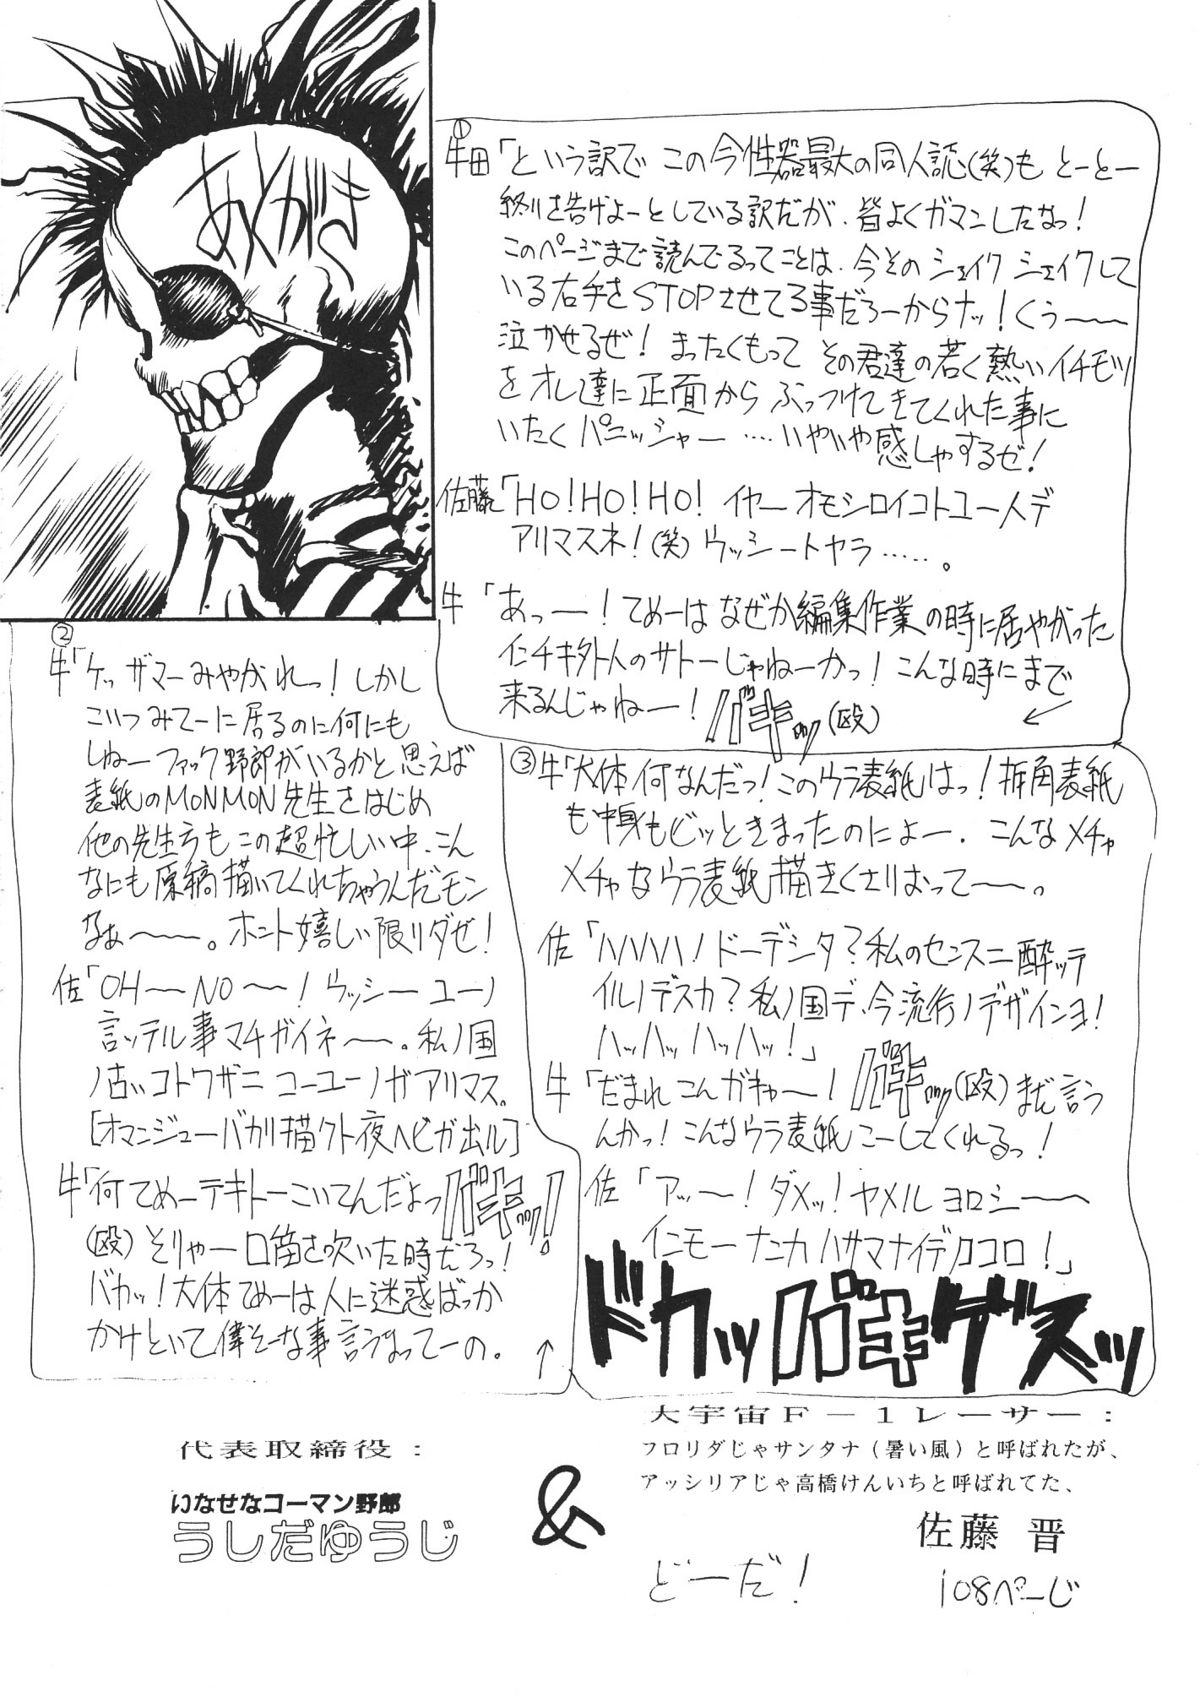 あくがき
①
牛田「という訳で この今性器最大の同人誌(笑)も とーとー
終りを告げよーとしている訳だが、皆よくガマンしたなっ!
このページまで読んでるってことは、今そのシェイク シェイクして
いる右手をSTOPさせてる事だろーからナッ!くぅ〜〜
泣かせるぜ! まったくもって その君達の若く熱いイチモツ
をオレ達に正面から ぶっつけてきてくれた事に
いたく パニッシャー‥‥いやいや感しゃするゼ!
佐藤「HO!HO!HO! イヤーオモシロイコトユー人デ
アリマスネ!(笑)ウッシートヤラ……。
牛「あっ―!てめーは なぜか編集作業の時に居やがった
インチキ外人のサトーじゃねーかっ!こんな時にまで
来るんじゃねー! バキッ(殴)
②
牛「ケッ ザマーみやがれっ!しかし
こいつみてーに居るのに何にも
しねーファック野郎がいるかと思えば
表紙のMONMON先生をはじめ
他の先生方も この超忙しい中、こん
なにも原稿描いてくれちゃうんだモン
なぁ〜〜。ホント嬉しい限りダゼ!
佐「OH〜NO〜!ウッシー ユーノ
言ッテル事マチガイネ〜。私ノ国
ノ古いコトワザニ コーユーノガアリマス。
[オマンジューバカリ描クト夜ヘビガ出ル]
牛「何てめーテキトーこいてんだよっ バキッ!
(殴)そりゃー口笛を吹いた時だろっ!
バカッ!大体てめーは人に迷惑ばっか
かけといて偉そーな事言うなってーの。
③
牛「大体何なんだっ!このウラ表紙はっ!折角表紙
も中身もビッときまったのによー、こんなメチャ
メチャなウラ表紙描きくさりおって〜。
佐「ハハハハ!ドーデシタ?私のセンスニ酔ッテ
イルノデスカ?私ノ国デ、今流行ノデザインヨ!
ハッハッハッハッ!」
牛「だまれこんガキゃ〜! バキッ(殴)まだ言う
んかっ!こんなウラ表紙こーしてくれるっ!
佐「アッ〜!ダメッ!ヤメル ヨロシ〜〜
インモーナンカ ハサマナイデノココロ!」
ドカッ バキ ゲスッ
代表取締役:
いなせなコーマン野郎
うしだゆうじ
&
大宇宙F－1レーサー:
フロリダじゃサンタナ(暑い風)と呼ばれたが、
アッシリアじゃ高橋けんいちと呼ばれてた、
佐藤 晋
どーだ!
108ページ